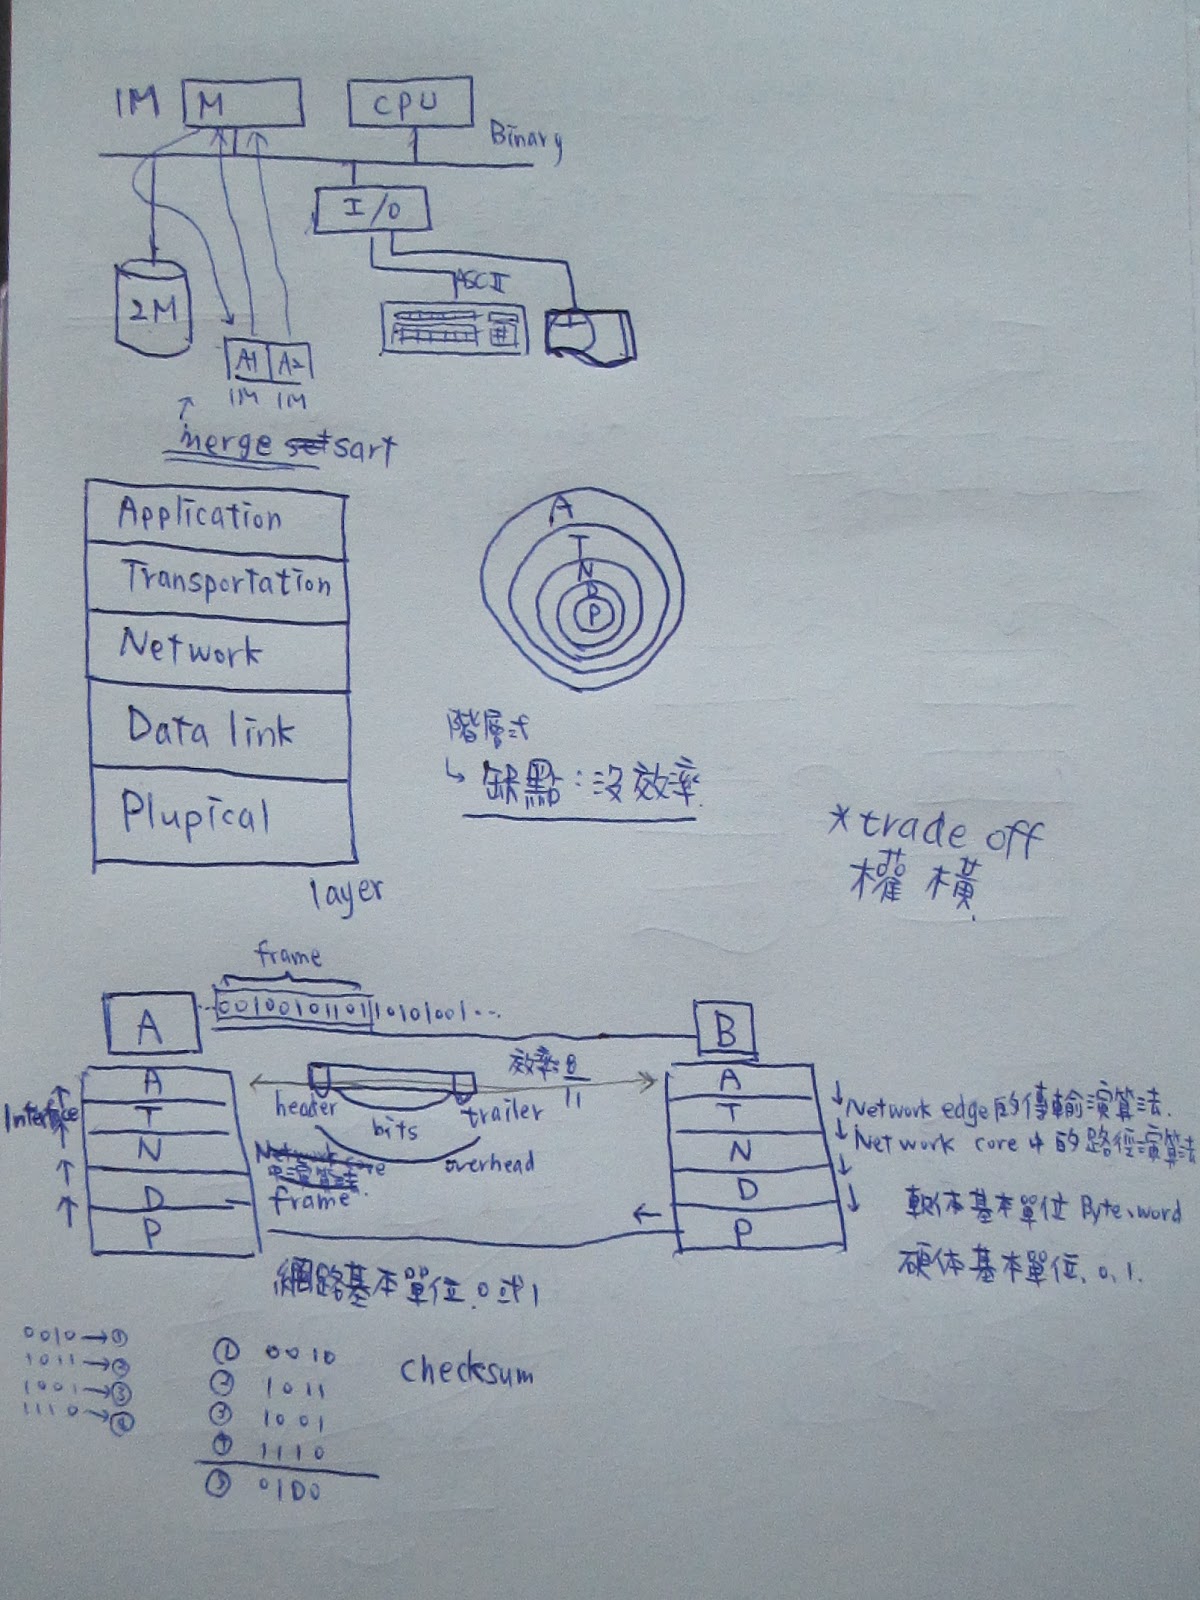 1M M CPU
Binary
I/O
2M
ASCII
A1 A2
1M 1M
merge sart
Application
Transportation
Network
Data link
Plupical
layer
A
T
N
D
P
階層式
缺點:沒效率
*trade off
權橫
frame
A ...0010010110110101001... B
A
T
N
D
P
Interface
header
bits
trailer
效率:8/11
overhead
Network core
frame
A
T
N
D
P
Network edge的傳輸演算法.
Network core中的路徑演算法
軟体基本單位 Byte、word
硬体基本單位、0,1.
網路基本單位、0或1
0010→①
1011→②
1001→③
1110→④
① 0010
② 1011
③ 1001
④ 1110
⑤ 0100
checksum